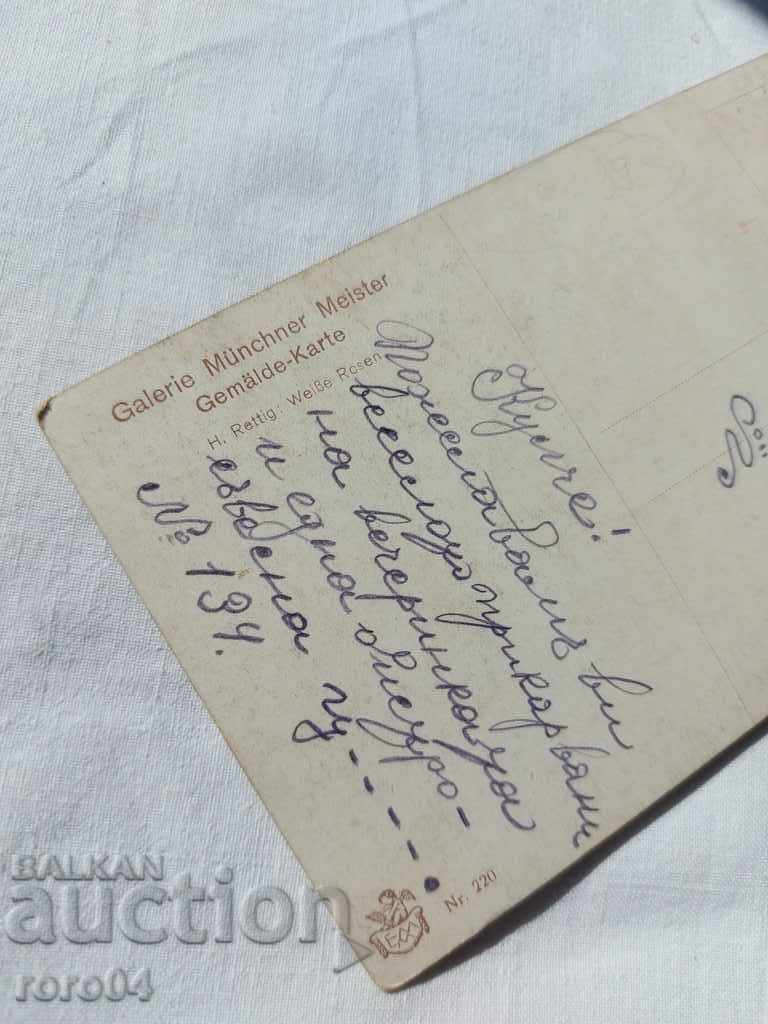 Galerie Münchner Meister
Gemälde-Karte
H. Rettig: Weiße Rosen
Кумче!
Пожелавамъ ви
весело прикарвание
на вечеринката
и една
съвесна
№ 134.
Nr. 220
BALKAN
auction
roro04